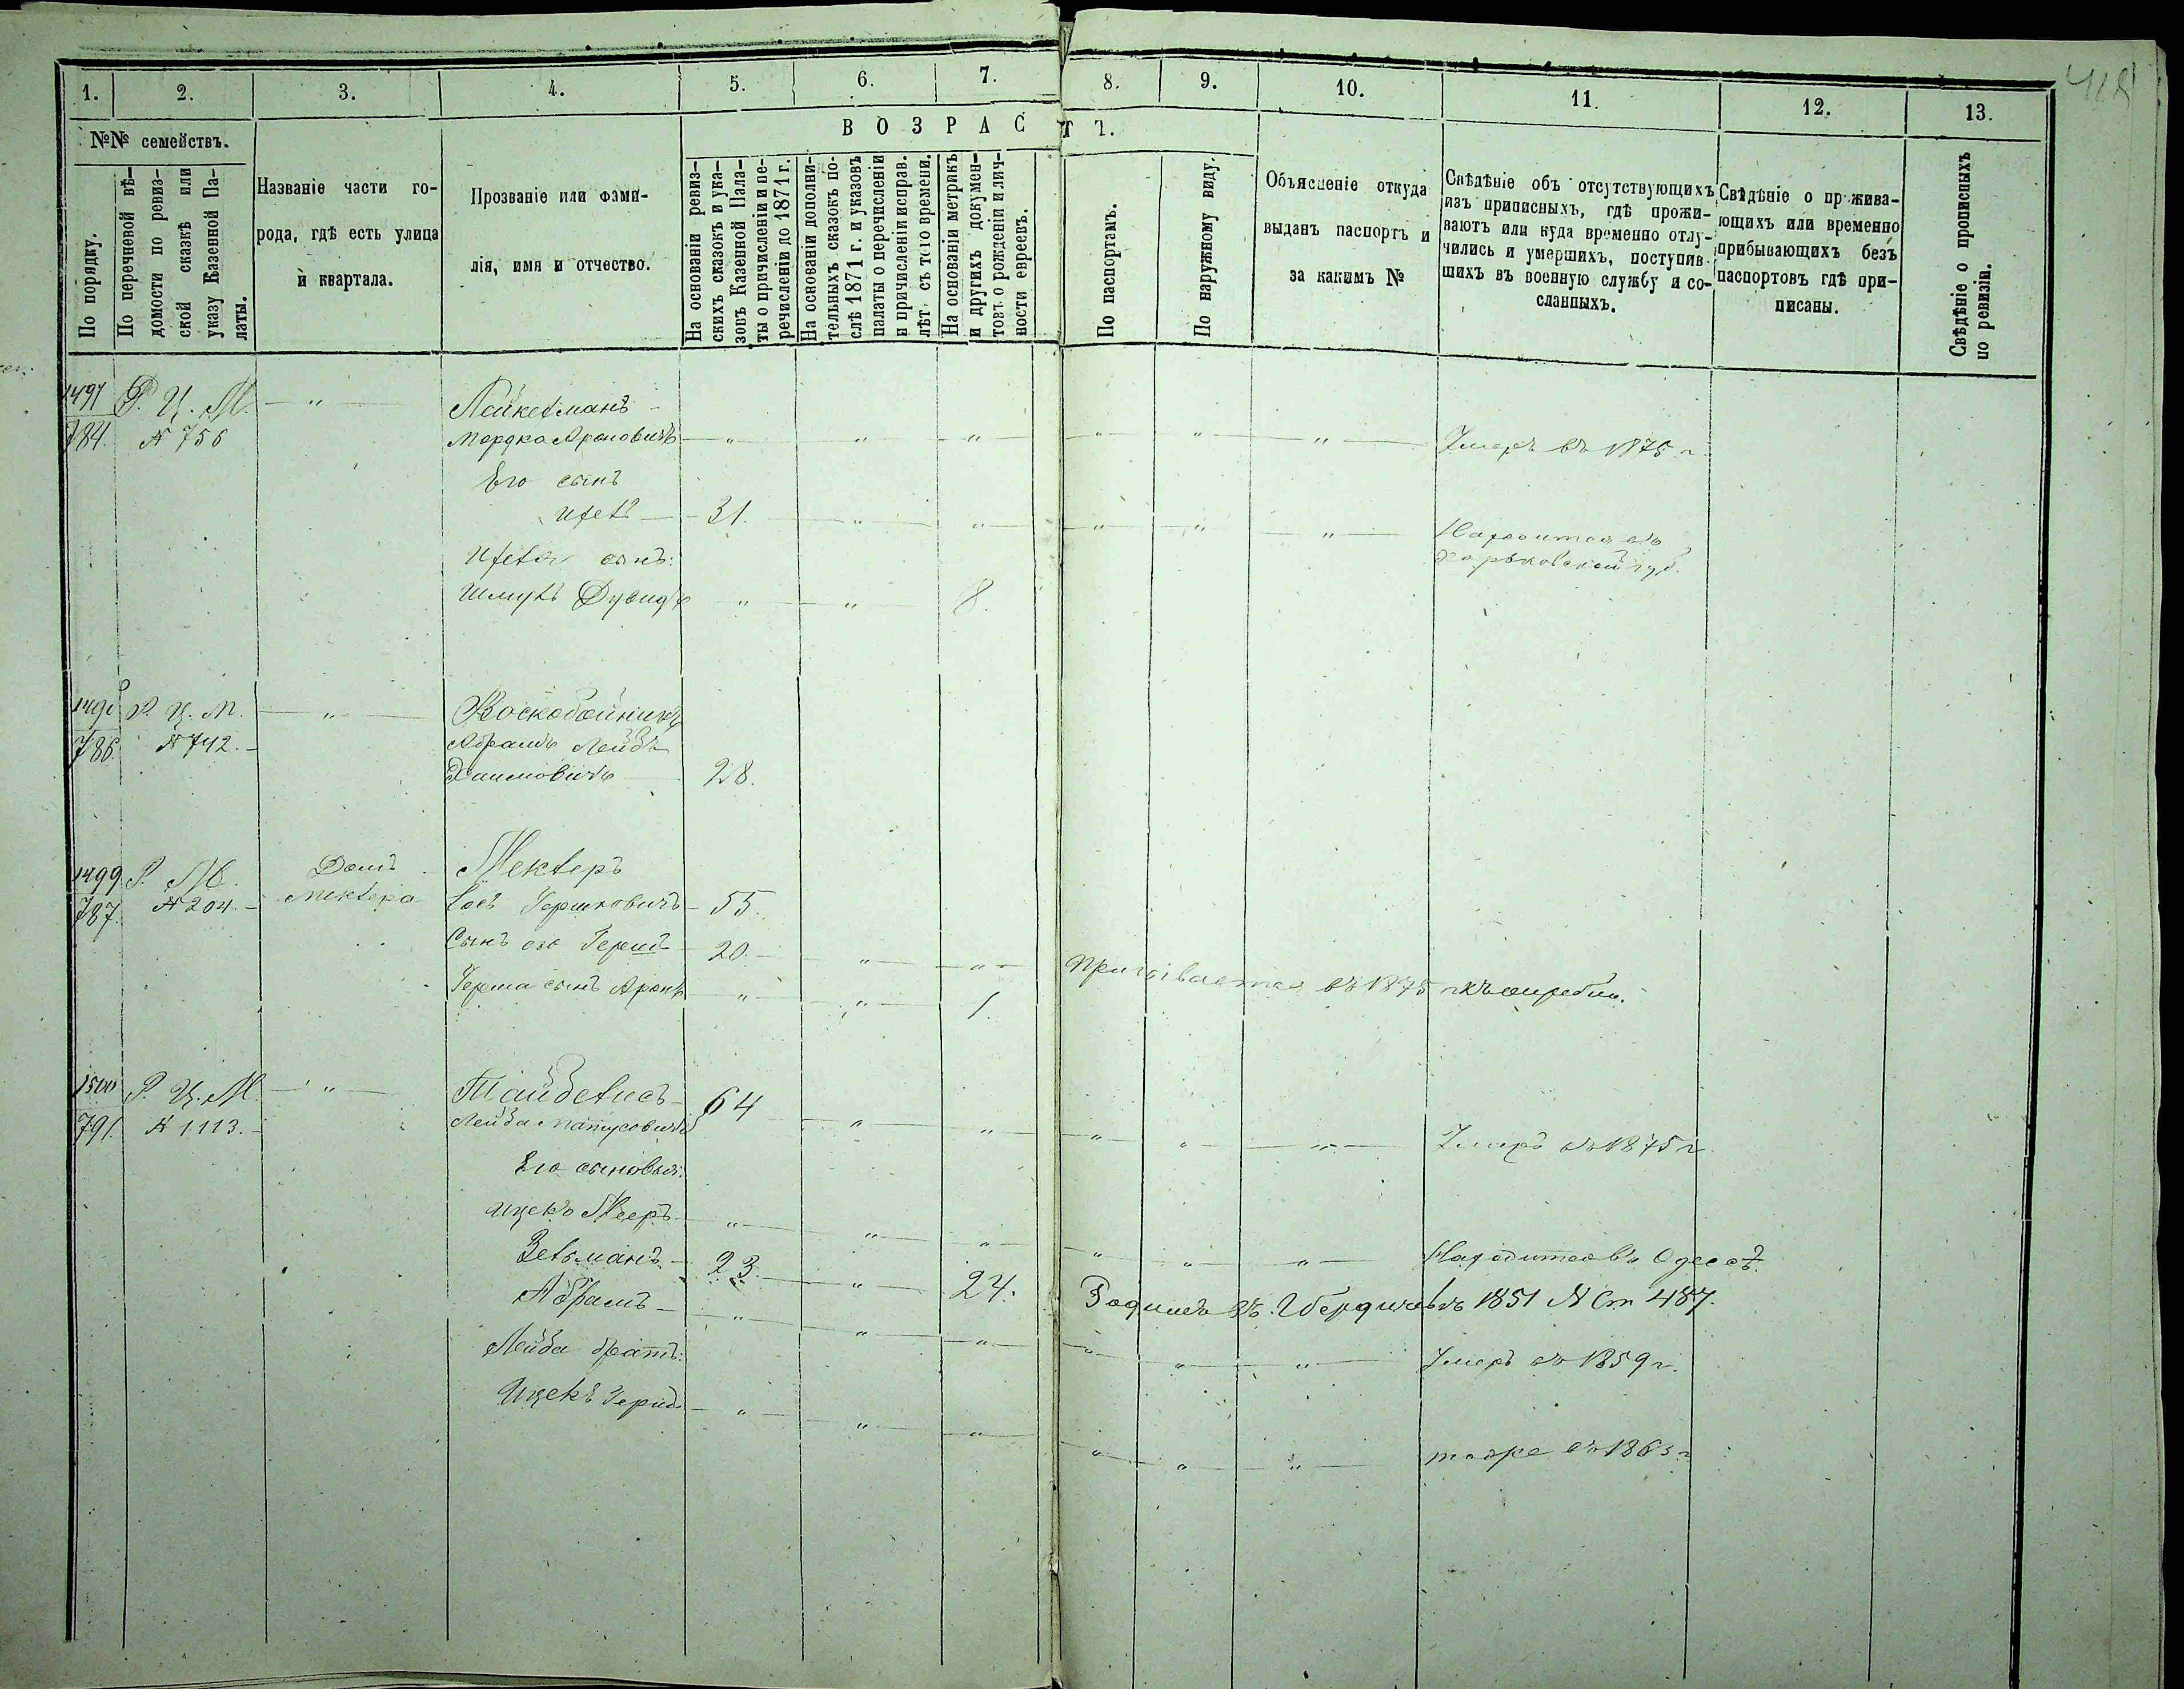 1.
2.
3.
4.
5.
6.
7.
8.
9.
10.
11.
12.
13.
№№ семействъ.
ВОЗРАСТЪ.
По порядку.
По перечневой вѣ-
домости по ревиз-
ской сказкѣ или
указу Казенной Па-
латы.
Названіе части го-
рода, гдѣ есть улица
и квартала.
Прозваніе или фами-
лія, имя и отчество.
На основаніи ревиз-
скихъ сказокъ и ука-
зовъ Казенной Пала-
ты о причисленіи и пе-
речисленіи до 1871 г.
На основаніи дополни-
тельныхъ сказокъ по-
слѣ 1871 г. и указовъ
палаты о перечисленіи
и причисленіи исправ.
лѣт. съ того времени.
На основаніи метрикъ
и другихъ докумен-
товъ о рожденіи и лич-
ности евреевъ.
По паспортамъ.
По наружному виду.
Объясненіе откуда
выданъ паспортъ и
за какимъ №
Свѣдѣніе объ отсутствующихъ
изъ приписныхъ, гдѣ прожи-
ваютъ или куда временно отлу-
чились и умершихъ, поступив-
шихъ въ военную службу и со-
сланныхъ.
Свѣдѣніе о прожива-
ющихъ или временно
прибывающихъ безъ
паспортовъ гдѣ при-
писаны.
Свѣдѣніе о прописныхъ
по ревизіи.
1497 Р. Ц. М. — " — Лейкелманъ
784. № 756 Мордко Ароновичъ — " " " " " " Умеръ въ 1875 г.
Его сынъ
Ицелъ — 31. " " " " " Находится въ
Харьковской губ.
сынъ:
Шмулъ Дувидъ " " 8.
1498 Р. Ц. М. — " — Воскобойникъ
786. № 742. — Абрамъ Лейбъ
Хаимовичъ 28.
1499. Р. М. Домъ Мектеръ
787. № 204. — Мектера Іосъ Гершковичъ — 55.
Сынъ его Гершъ — 20. — " " Призывается въ 1875 г. къ жребію.
Герша сынъ Аронъ " " 1.
1500 Р. Ц. М. — " — Тайбелисъ — 64
791. № 1113. — Лейба Матусовичъ " " " " " Умеръ въ 1875 г.
Его сыновья:
Ицекъ Мееръ — " " " " " " Находится въ Одессѣ.
Зельманъ — 23. " 24. Родился въ г. Бердичевъ 1851 № Ст 487.
Абрамъ — " " " " " " Умеръ въ 1859 г.
Лейба братъ:
Ицекъ Гершъ — " " " " " " тоже въ 1863 г.